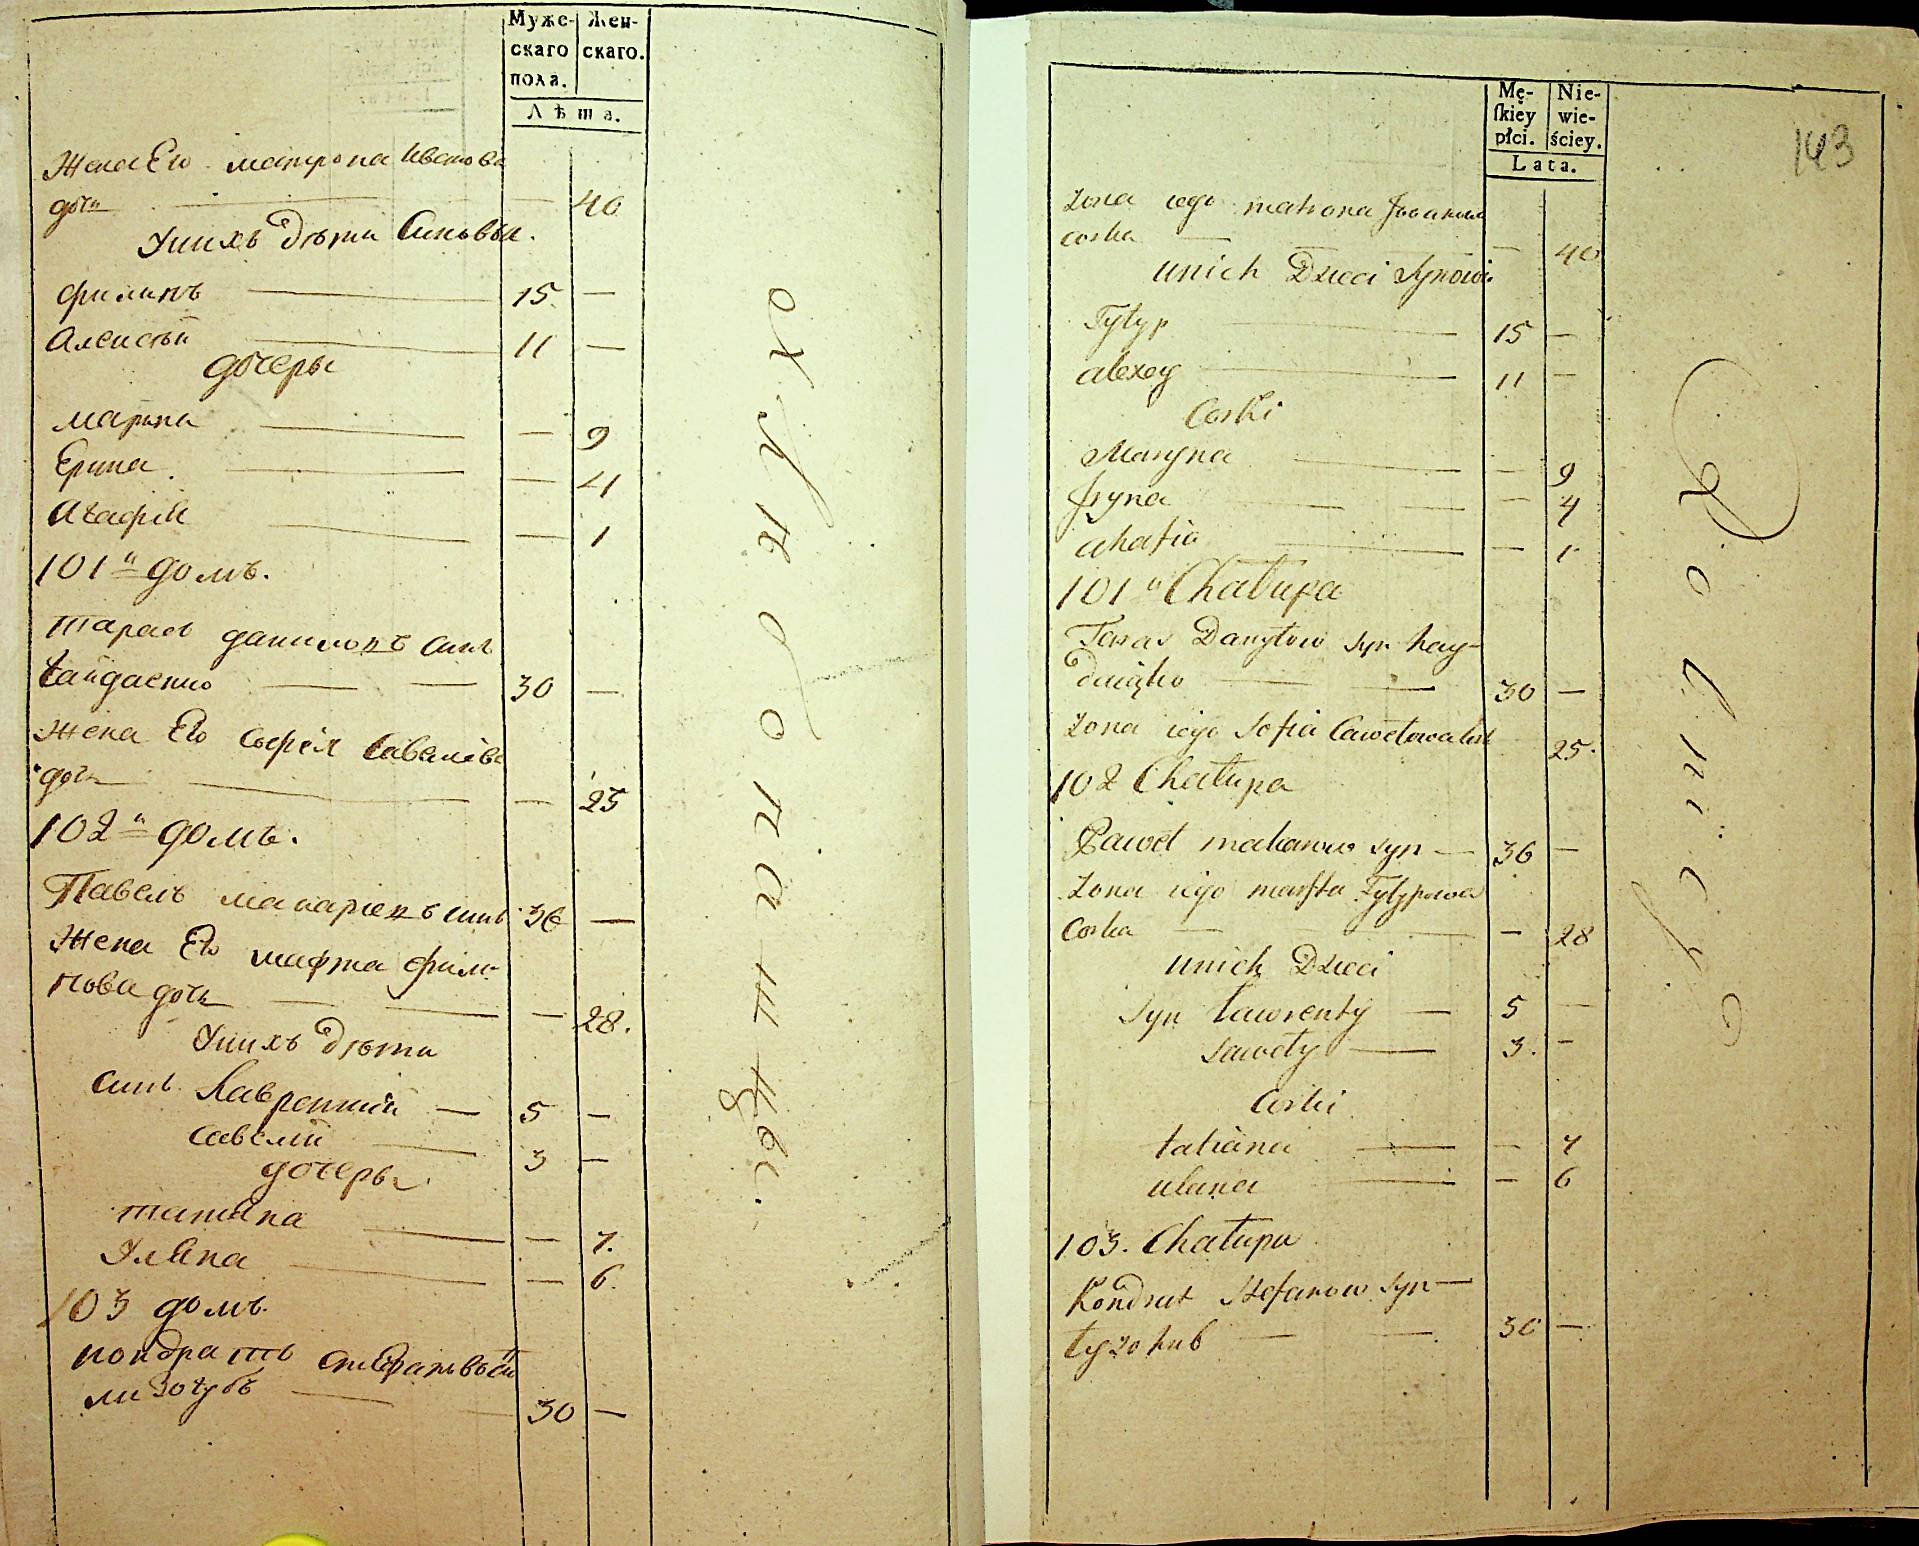 Муже- Жен-
скаго скаго.
пола.
Лѣта.
Жена Его матрона Иванова
дочь — — 40
Унихъ дѣти Синовьи.
филипъ — 15 —
Алексѣй — 11 —
дочеры
марина — — 9
Ерина — — 4
Агафия — — 1
101й домъ.
Тарасъ даниловъ синъ
гайдаенко — — 30 —
Жена Его Софѣя Савелѣва
дочь — — 25
102й домъ.
Павелъ макариевъ синъ 36 —
Жена Его марфа фили-
пова дочь — — — 28.
Унихъ дѣти
синъ Лаврентий — 5 —
савелий — 3 —
дочеры
татиана — — 7.
Улиана — — 6.
103 домъ
кондратъ
лизогубъ — 30 —
143
Mę- Nie-
ſkiey wie-
płci. ściey.
Lata.
Zona iego matrona Joanowa
corka — — 40
unich Dzieci Synowi
Fylyp — 15 —
alexey — 11 —
Corki
Maryna — — 9
Jryna — — 4
ahafia — — 1
101a Chałupa
Taras Danyłow syn hay-
daięko — — 30 —
Zona iego Sofia Sawełowa 25.
102 Chałupa
Paweł makarow syn — 36 —
Zona iego marfta Fylypowa
Corka — — — 28
unich Dzieci
Syn ławrenty — 5 —
Sawely — 3. —
Corki
tatiana — — 7
ulana — — 6
103. Chałupa
Kondrat Stefanow Syn —
łyzohub — — 30 —